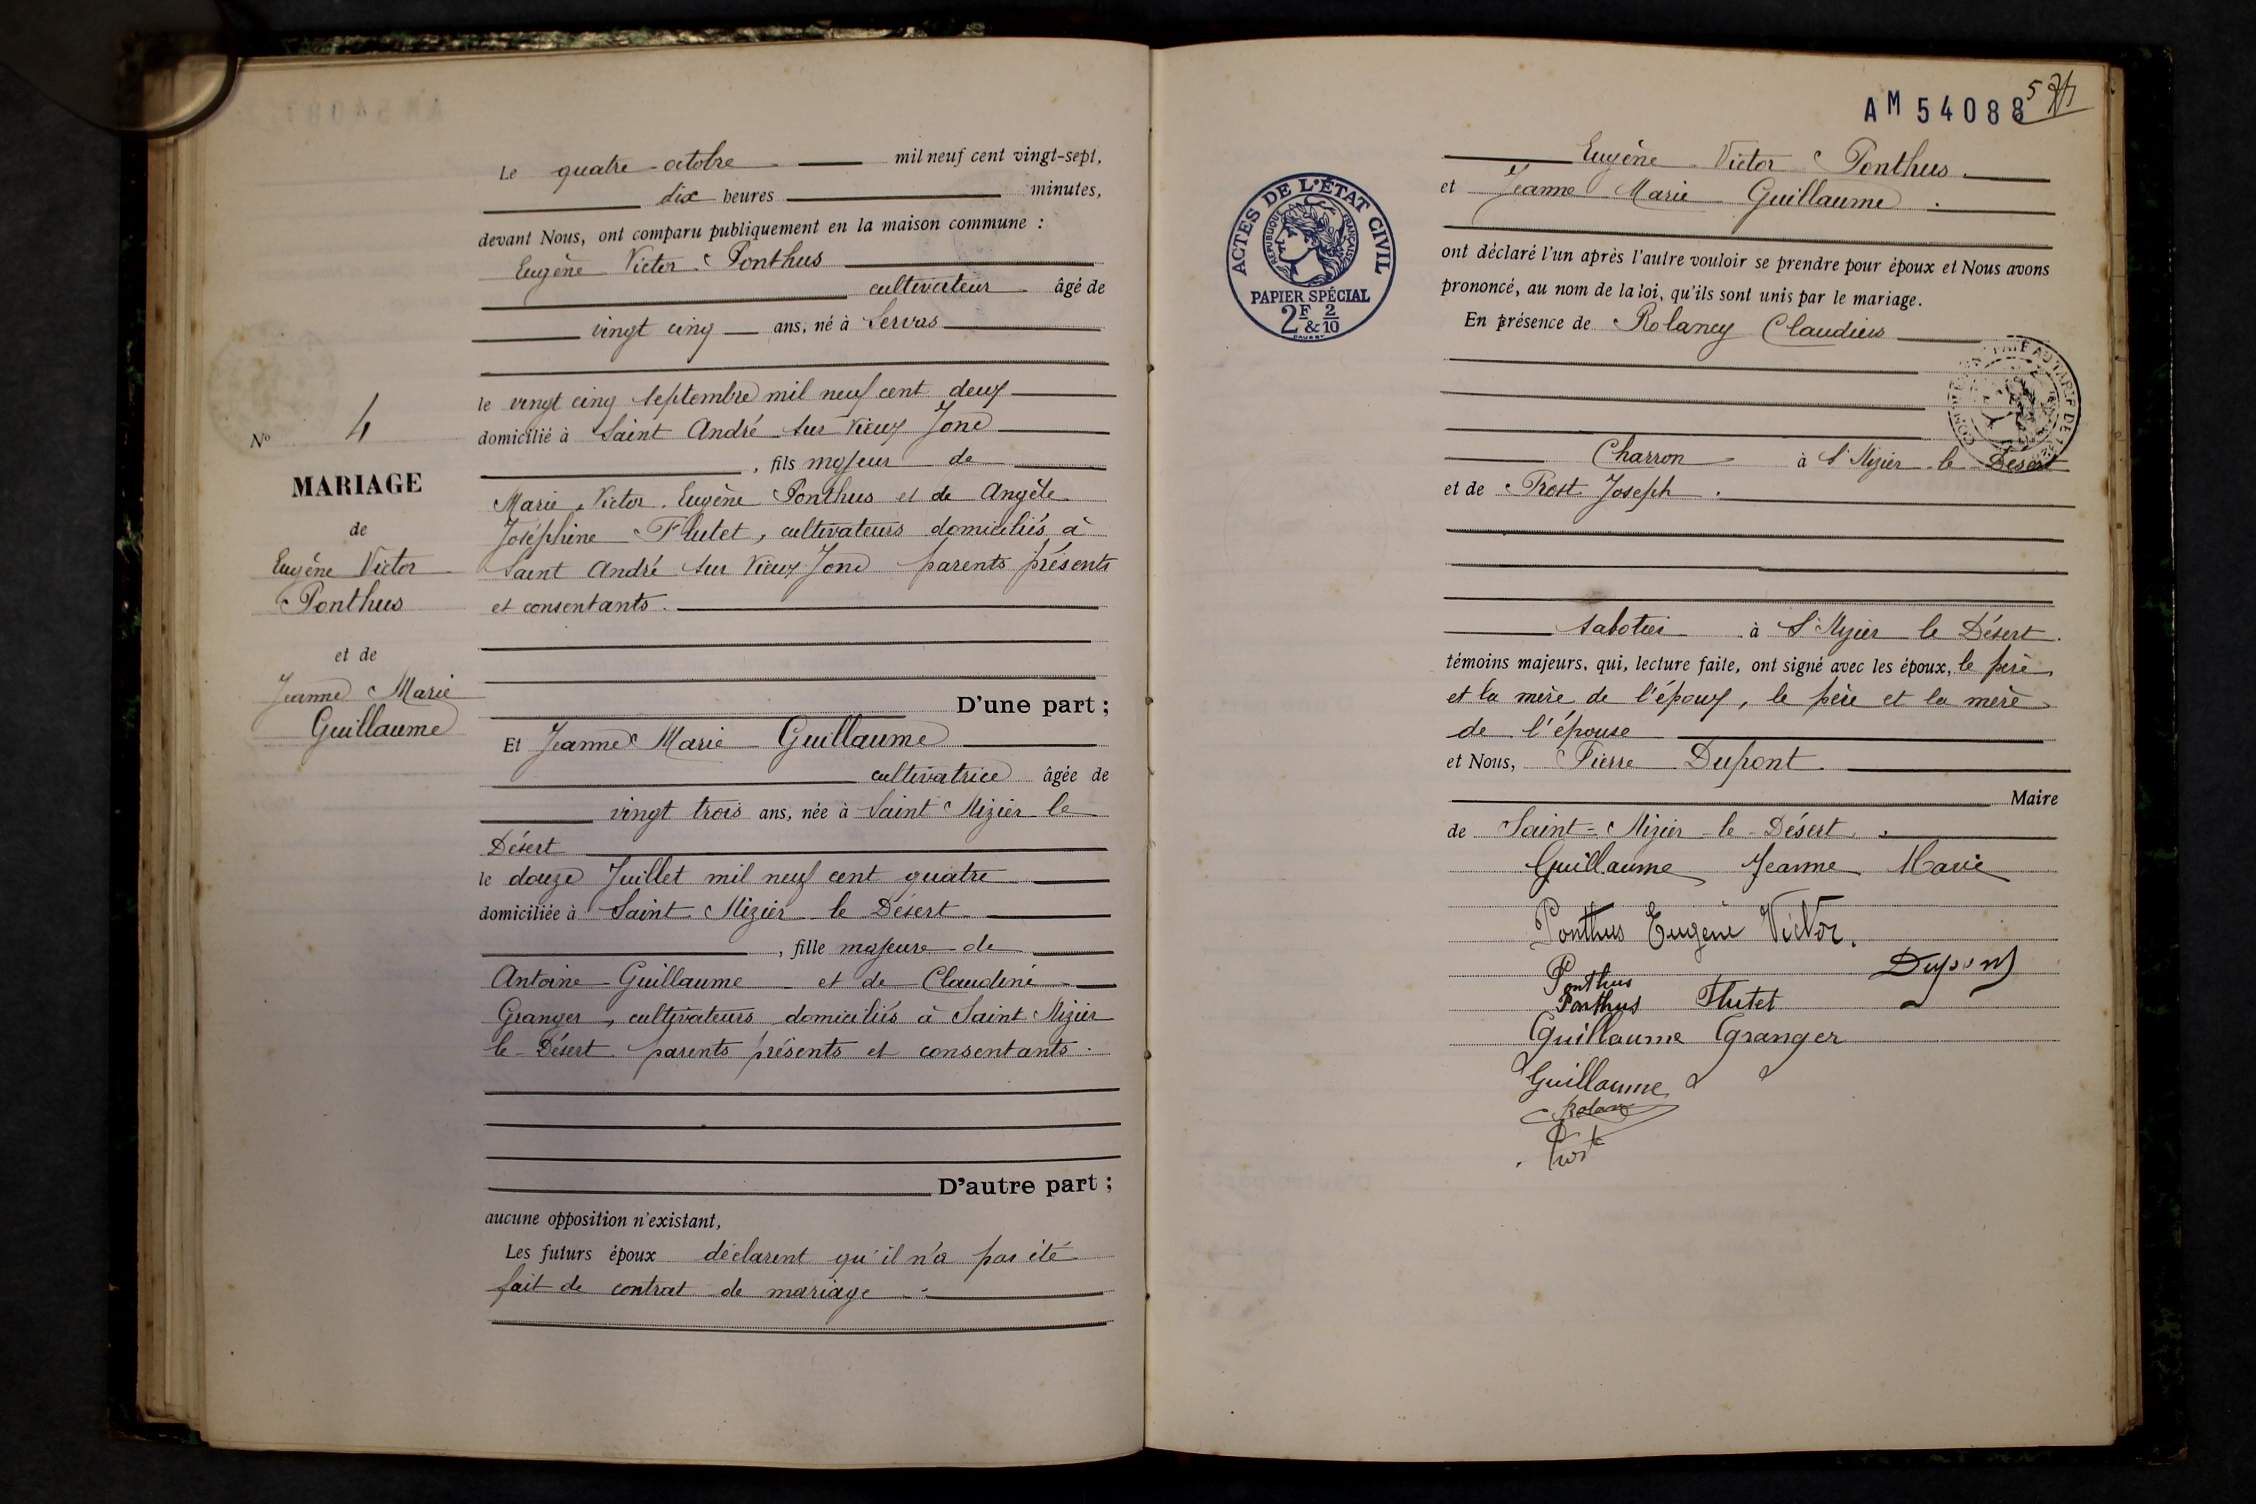 Le quatre octobre mil neuf cent vingt-sept,
dix heures minutes,
devant Nous, ont comparu publiquement en la maison commune :
Eugène Victor Ponthus
cultivateur âgé de
vingt cinq ans, né à Servas
le vingt cinq septembre mil neuf cent deux
domicilié à Saint André sur Vieux Jonc
, fils majeur de
Marie Victor Eugène Ponthus et de Angèle
Joséphine Flutet, cultivateurs domiciliés à
Saint André sur Vieux Jonc parents présents
et consentants.
D'une part ;
Nº 4
MARIAGE
de
Eugène Victor
Ponthus
et de
Jeanne Marie
Guillaume
Et Jeanne Marie Guillaume
cultivatrice âgée de
vingt trois ans, née à Saint Nizier le
Désert
le douze Juillet mil neuf cent quatre
domiciliée à Saint Nizier le Désert
, fille majeure de
Antoine Guillaume et de Claudine
Granger, cultivateurs domiciliés à Saint Nizier
le Désert parents présents et consentants.
D'autre part ;
aucune opposition n'existant,
Les futurs époux déclarent qu'il n'a pas été
fait de contrat de mariage
AM 54088
Eugène Victor Ponthus
et Jeanne Marie Guillaume
ACTES DE L'ÉTAT CIVIL
RÉPUBLIQUE FRANÇAISE
PAPIER SPÉCIAL
2F & 2/10
ont déclaré l'un après l'autre vouloir se prendre pour époux et Nous avons
prononcé, au nom de la loi, qu'ils sont unis par le mariage.
En présence de Rolancy Claudius
Charron à St Nizier le Désert
et de Prost Joseph
sabotier à St Nizier le Désert.
témoins majeurs, qui, lecture faite, ont signé avec les époux, le père
et la mère de l'époux, le père et la mère
de l'épouse
et Nous, Pierre Dupont
Maire
de Saint-Nizier-le-Désert.
Guillaume Jeanne Marie
Ponthus Eugène Victor.
Ponthus Dupont
Ponthus Flutet
Guillaume Granger
Guillaume
Prost